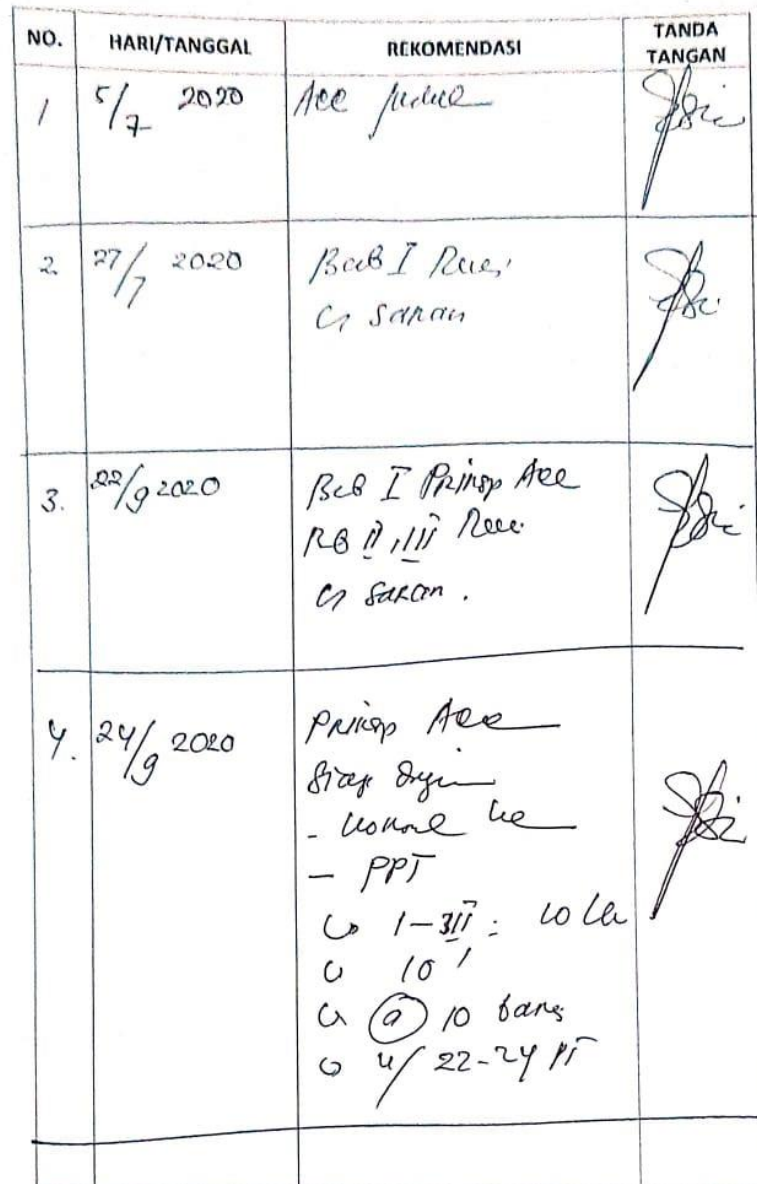 NO. HARI/TANGGAL REKOMENDASI TANDA TANGAN
1 5/7 2020 Acc judul
2. 27/7 2020 Bab I Rev,
saran
3. 22/9 2020 Bab I Prinsip Acc
RB II, III Rev.
saran.
4. 24/9 2020 Prinsip Acc
Siap
-
- PPT
1-3II :
10 '
(a) 10 baris
u/ 22-24 PT